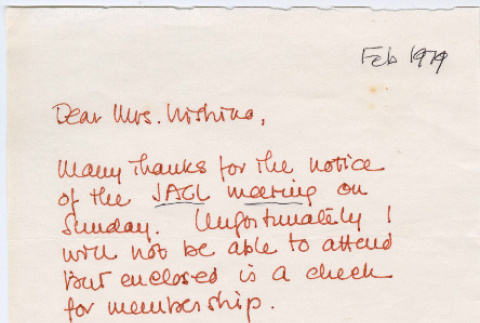 Feb 1979
Dear Mrs. Nishino,
Many thanks for the notice
of the JACL meeting on
Sunday. Unfortunately I
will not be able to attend
but enclosed is a check
for membership.